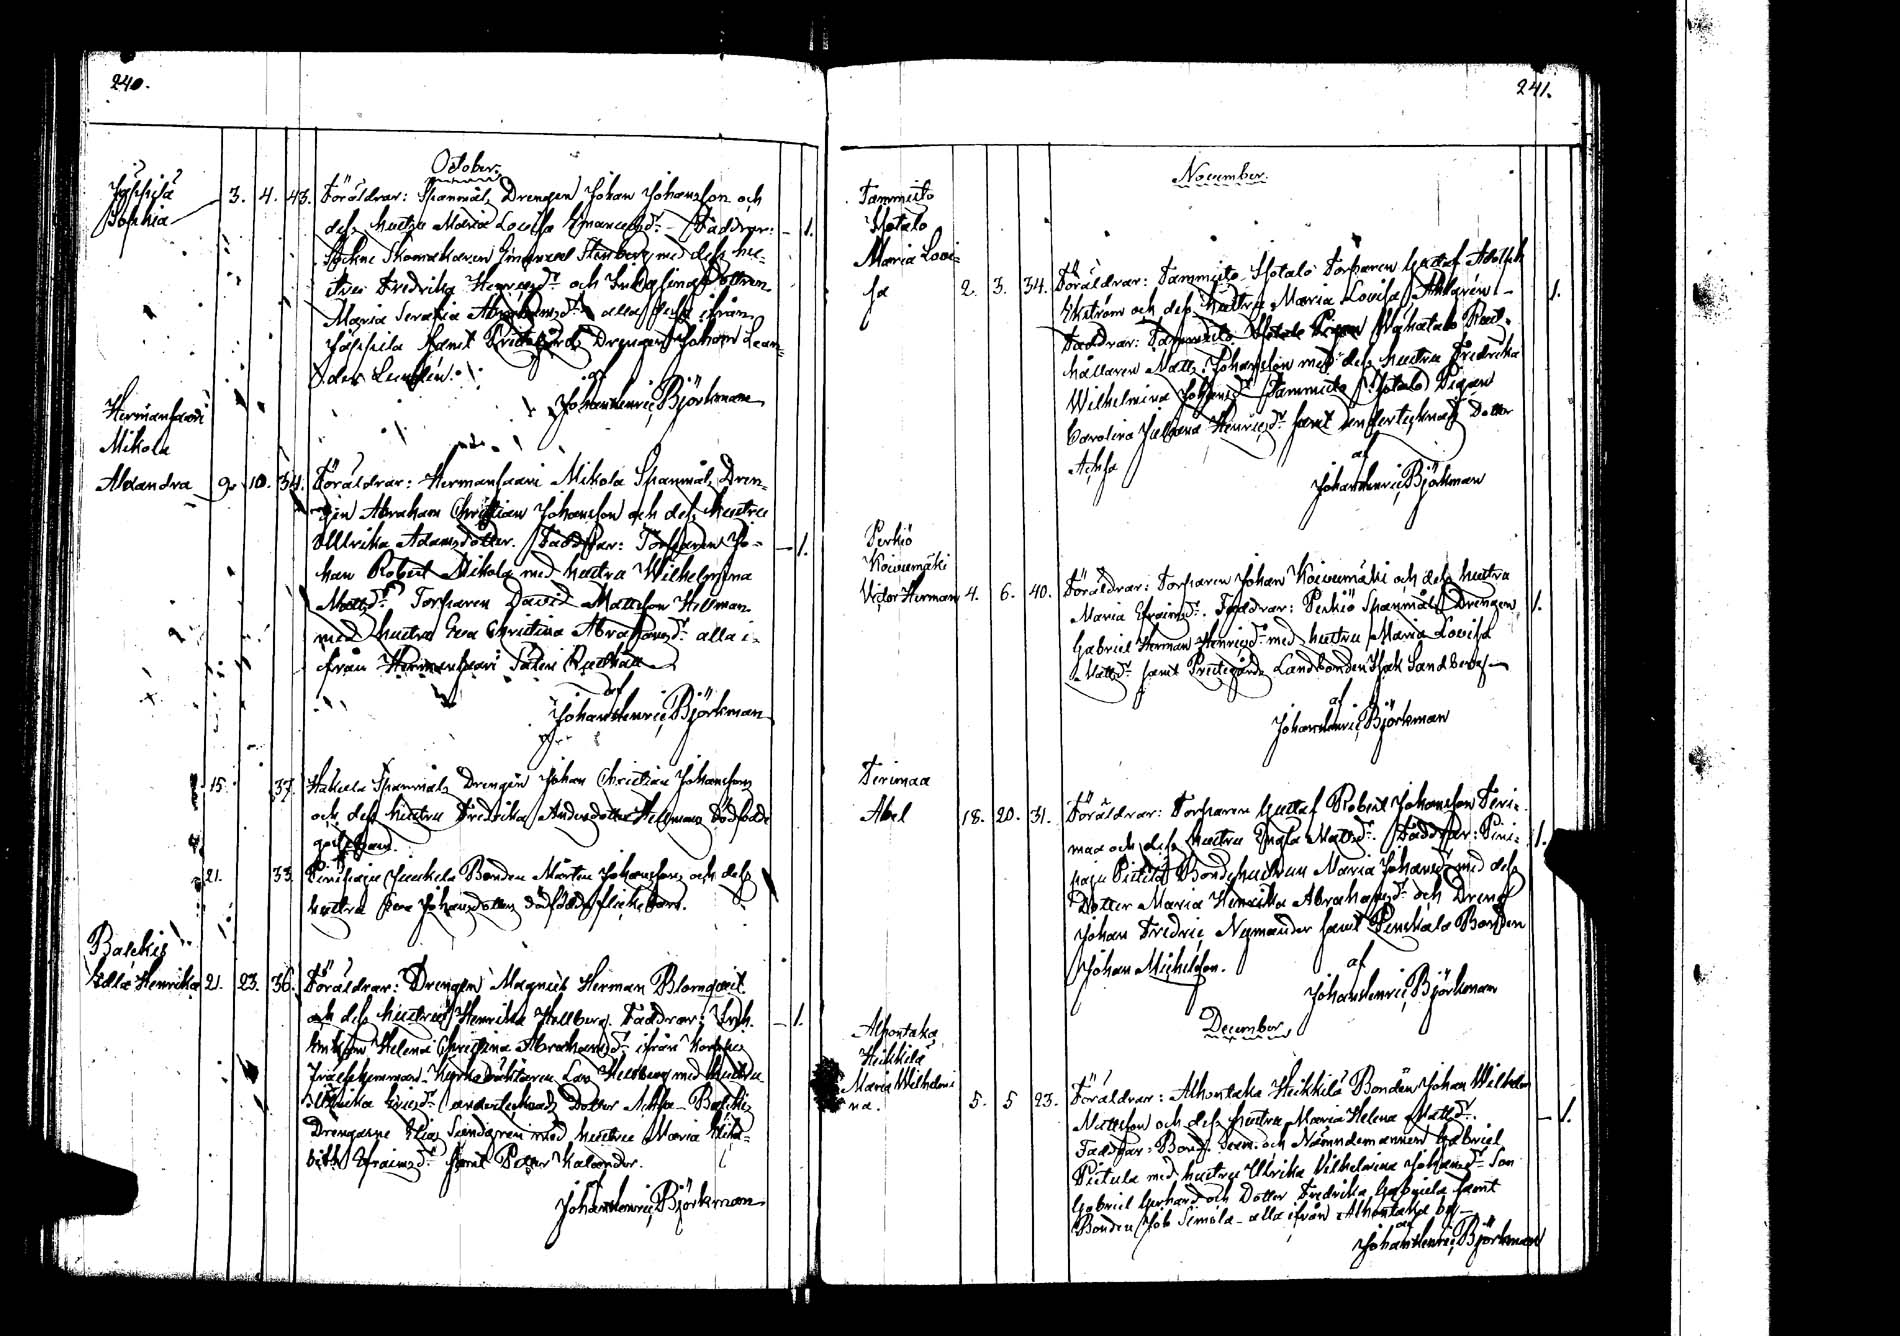 240.
October.
Jäppilä
Sophia
3. 4. 43. Föräldrar: Spanmåls Drengen Johan Johansson och
dess hustru Maria Lovisa Emanuelsdr. Faddrar: 1.
Sockne Skomakaren Emanuel Stenberg med dess hu-
stru Fredrika Henricsdr och Inhysings Dottren
Maria Serafia Abrahamsdr alla ifrån
Jäppilä samt Prestgårds Drengen Johan Lean-
der Lundén.
af
Johan Henric Björkman
Hermansaari
Mikola
Alexandra 9. 10. 34. Föräldrar: Hermansaari Mikola Spanmåls Dren-
gen Abraham Christian Johansson och dess hustru
Ullrika Adamsdotter. Faddrar: Torparen Jo- 1.
han Robert Mikola med hustru Wilhelmina
Mattsdr Torparen David Mattsson Hellman
med hustru Eva Christina Abrahamsdr alla i-
från Hermansaari Säteri Rusthåll
af
Johan Henric Björkman
15. 37. Spanmåls Drengen Johan Christian Johansson
och dess hustru Fredrika Andersdotter Hellmans dödfödde
gossebarn.
21. 33. Junkola Bonden Mårten Johansson och dess
hustru Eva Johansdotters dödfödde flickebarn.
Balckis
Edla Henrika 21. 23. 36. Föräldrar: Drengen Magnus Herman Blomqvist
och dess hustru Henrika Hellberg. Faddrar: 1.
Helena Christina Abrahamsdr ifrån
Kyrkoväktaren Lars Hellberg med hustru
Ullrika Ericsdr undertecknads Dotter Achsa Balckis
Drengarne Elias Sundgren med hustru Maria Elisa-
beth Efraimsdr samt Petter Kalander.
Johan Henric Björkman
241.
November.
Tammisto
Isotalo
Maria Lovi-
sa 2. 3. 34. Föräldrar: Tammisto Isotalo Torparen Gustaf Adolph
Ekström och dess hustru Maria Lovisa 1.
Faddrar: Tammisto Wähätalo Rust-
hållaren Matts Johansson med dess hustru Fredrika
Wilhelmina Johansdr Tammisto Isotalo Pigan
Carolina Juliana Henricsdr samt undertecknads Dotter
Achsa
af
Johan Henric Björkman
Perkiö
Koivumäki
Victor Herman 4. 6. 40. Föräldrar: Torparen Johan Koivumäki och dess hustru
Maria Efraimsdr. Faddrar: Perkiö Spanmåls Drengen 1.
Gabriel Herman med hustru Maria Lovisa
Mattsdr samt Prestgårds Landbonden Isak Sandberg
af
Johan Henric Björkman
Terimaa
Abel 18. 20. 31. Föräldrar: Torparen Gustaf Robert Johansson Teri-
maa och dess hustru Ingla Mattsdr. Faddrar: Pini- 1.
paju Pietilä Bondehustrun Maria Johansdr med dess
Dotter Maria Henrika Abrahamsdr och Dreng
Johan Fredric Nymander samt Penckala Bonden
Johan Michelsson.
af
Johan Henric Björkman
December.
Alhontaka
Heikkilä
Maria Wilhelmi
na. 5. 5 23. Föräldrar: Alhontaka Heikkilä Bonden Johan Wilhelm
Mattsson och dess hustru Maria Helena Mattsdr. 1.
Faddrar: och Nämndemannen Gabriel
Pietula med hustru Ulrika Vilhelmina Johansdr Son
Gabriel Gerhard och Dotter Fredrika Gabriela samt
Bonden Job Simola alla ifrån Alhontaka by
af
Johan Henric Björkman